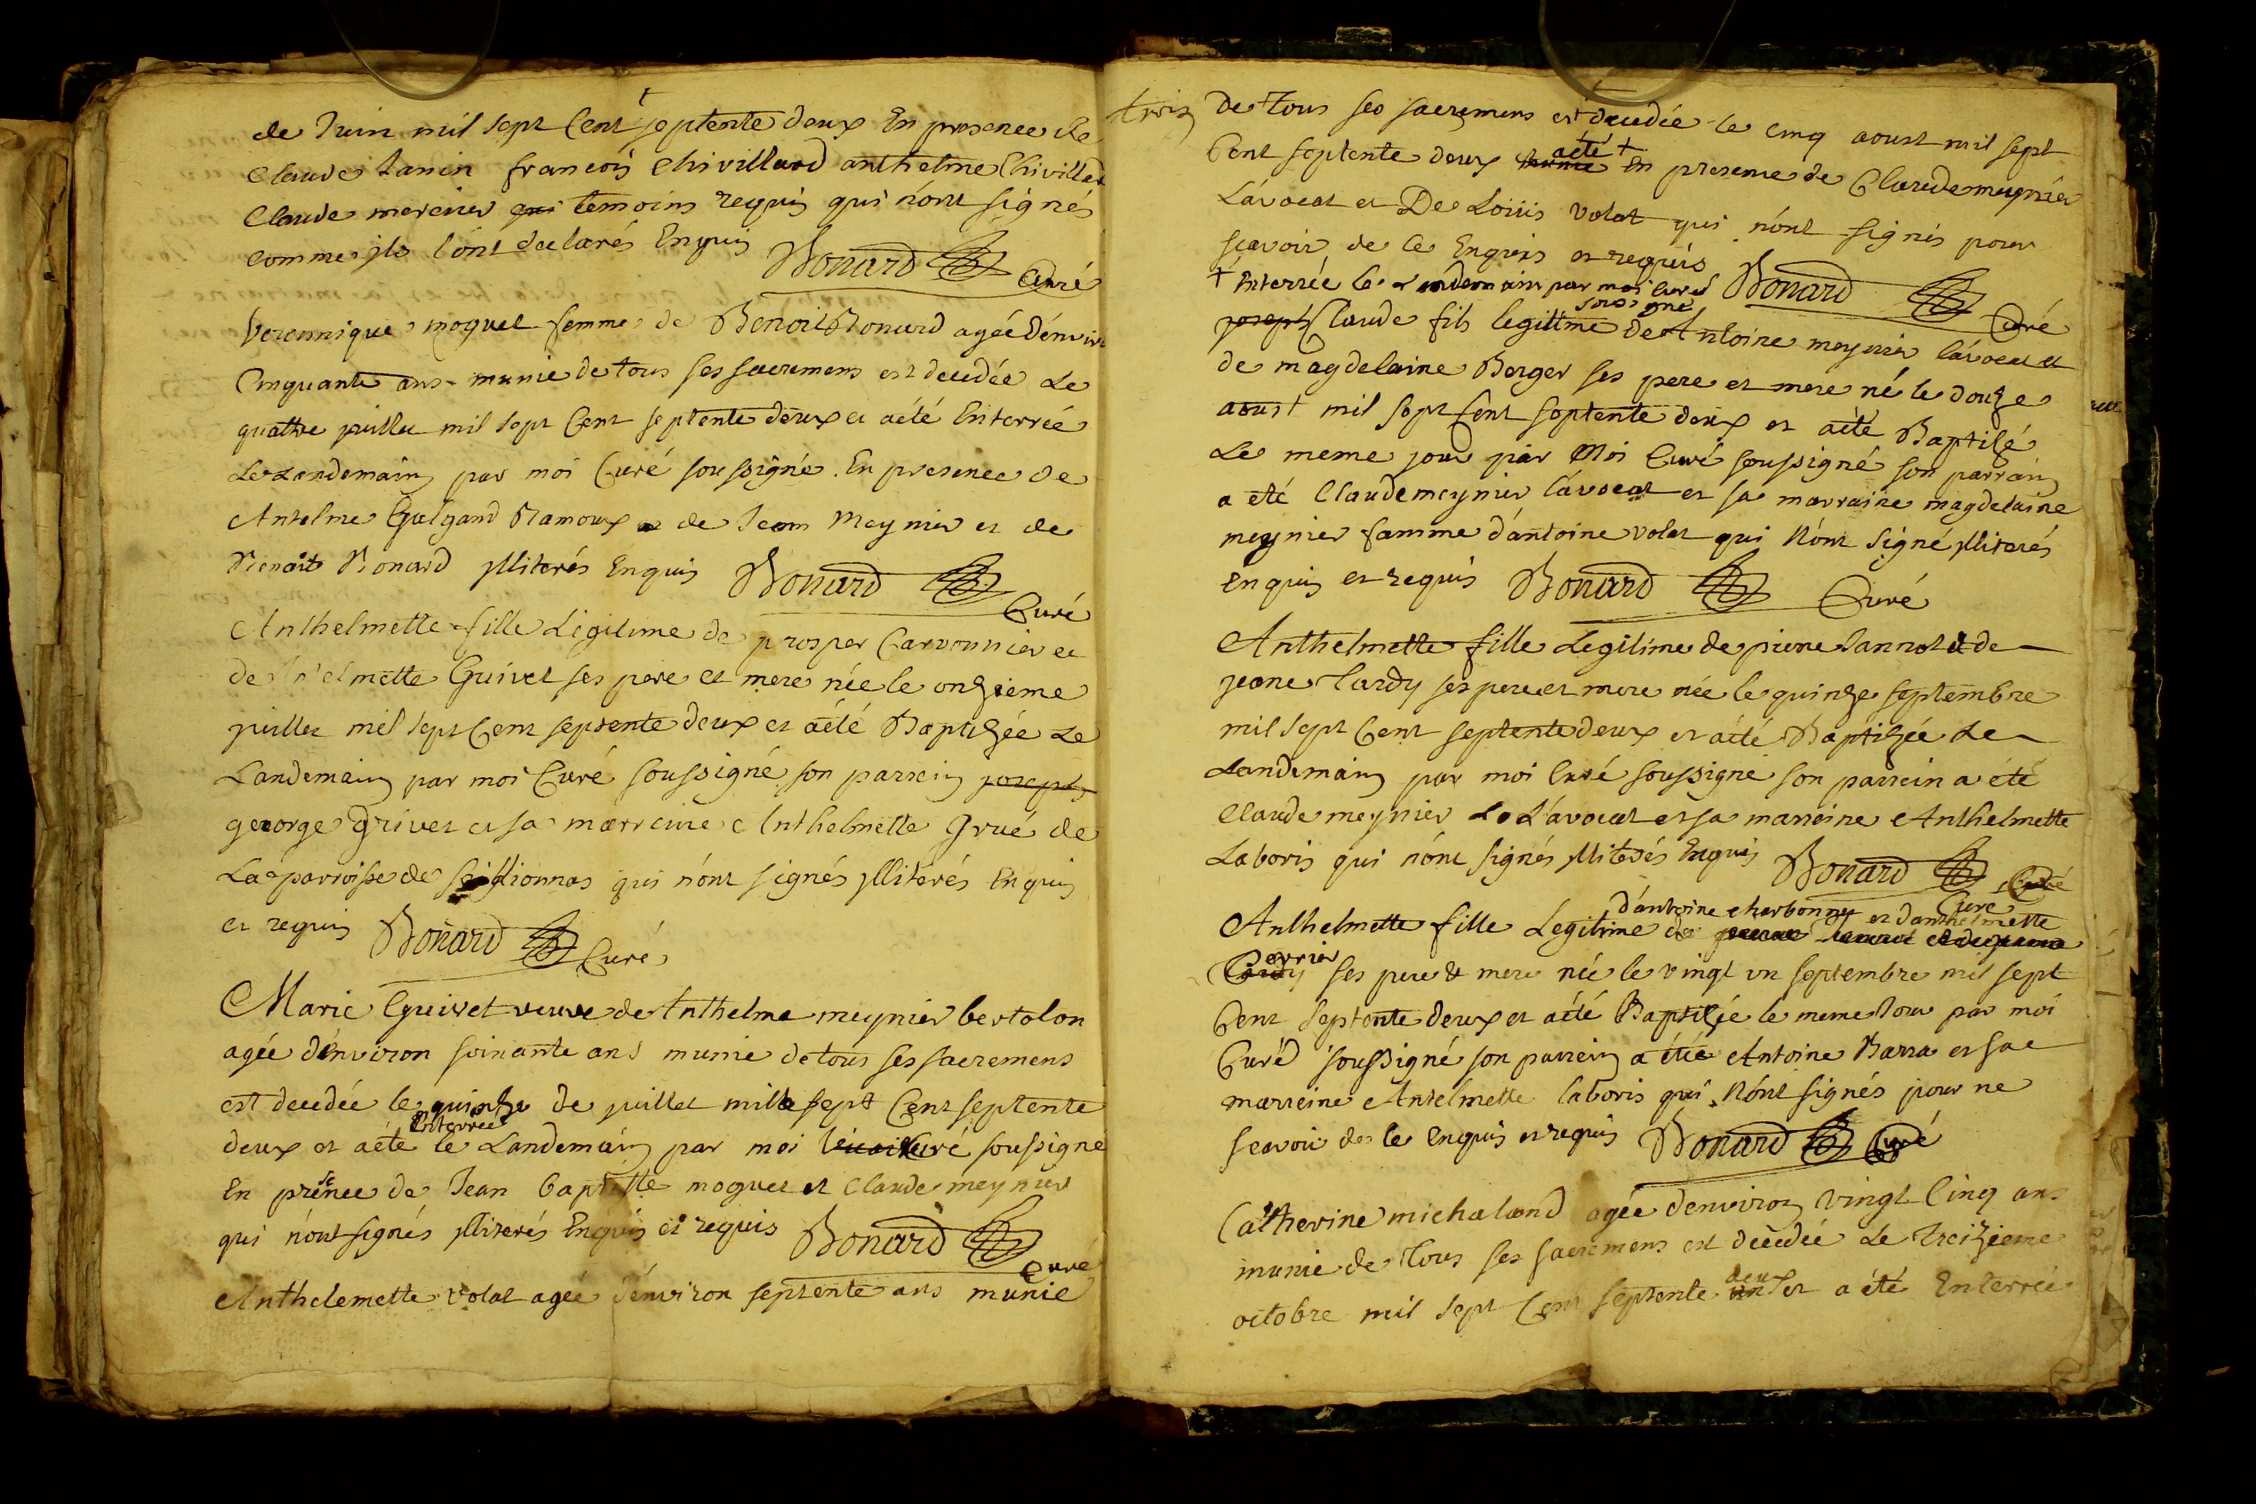 de Juin mil sept Cent septente deux En presence de
Claude Janin francois Chivillard anthelme Chivillard
Claude mercier qui temoins requis qui n'ont signés
comme ils l'ont declarés Enquis Bonard Curé
Veronnique moquet femme de Benoit Bonard agée d'environ
Cinquante ans munie de tous ses sacremens est decedée Le
quattre juillet mil sept Cent septente deux et aété Enterrée
Le Landemain par moi Curé soussigné. En presence de
Antelme Ramoux et de Jean Meynier et de
Benoit Bonard illiterés Enquis Bonard Curé
Anthelmette fille Légitime de prosper Carvonnier et
de Guivet ses pere et mere née le onzieme
juillet mil sept Cent septente deux et aété Baptizée Le
Landemain par moi Curé soussigné son parrein joseph
george Grivet et sa marreine Anthelmette Grué de
La parroisse de qui n'ont signés illiterés Enquis
et requis Bonard Curé
Marie Guivet veuve de Anthelme meynier bertolon
agée d'environ soixante ans munie de tous ses sacremens
est decedée le quinze de juillet mille sept Cent septente
deux et aété Enterrée le Landemain par moi vicaire Curé soussigné
En presence de Jean baptiste moquet et Claude meynier
qui n'ont signés illiterés Enquis et requis Bonard Curé
Anthelemette volat agée d'environ septente ans munie
trois De tous ses sacremens est decedée le cinq aoust mil sept
Cent septente deux munie aété + En presence de Claude meynier
L'avocat et De Loüis volat qui n'ont signés pour
scavoir de ce Enquis et requis Bonard Curé
+ Enterrée le Landemain par moi Curé soussigné
joseph Claude fils legittme de Antoine meynier l'avocat et
de magdelaine Berger ses pere et mere né le douze
aoust mil sept Cent septente deux et aété Baptizé
Le meme jour par Moi Curé soussigné son parrain
a eté Claude meynier l'avocat et sa marraine magdelaine
meynier famme d'antoine volat qui n'ont signé illiterés
Enquis et requis Bonard Curé
Anthelmette fille Legitime de pierre Jannot et de
jeane Tardy ses pere et mere née le quinze septembre
mil sept Cent septente deux et aété Baptizée Le
Landemain par moi Curé soussigné son parrein a été
Claude meynier Le L'avocat et sa marreine Anthelmette
Laboris qui n'ont signés illiterés Enquis Bonard Curé
Anthelmette fille Legitime de d'antoine charbonnet et d'anthelmette
ses pere & mere née le vingt un septembre mil sept
Cent septente deux et aété Baptizée le meme Jour par moi
Curé soussigné son parrein a été Antoine Barra et sa
marreine Antelmette laboris qui n'ont signés pour ne
scavoir de ce Enquis et requis Bonard Curé
Catherine michaland agée d'environ vingt Cinq ans
munie de Tous ses sacremens est decedée Le Treizieme
octobre mil sept Cent septente un deux et a été Enterrée